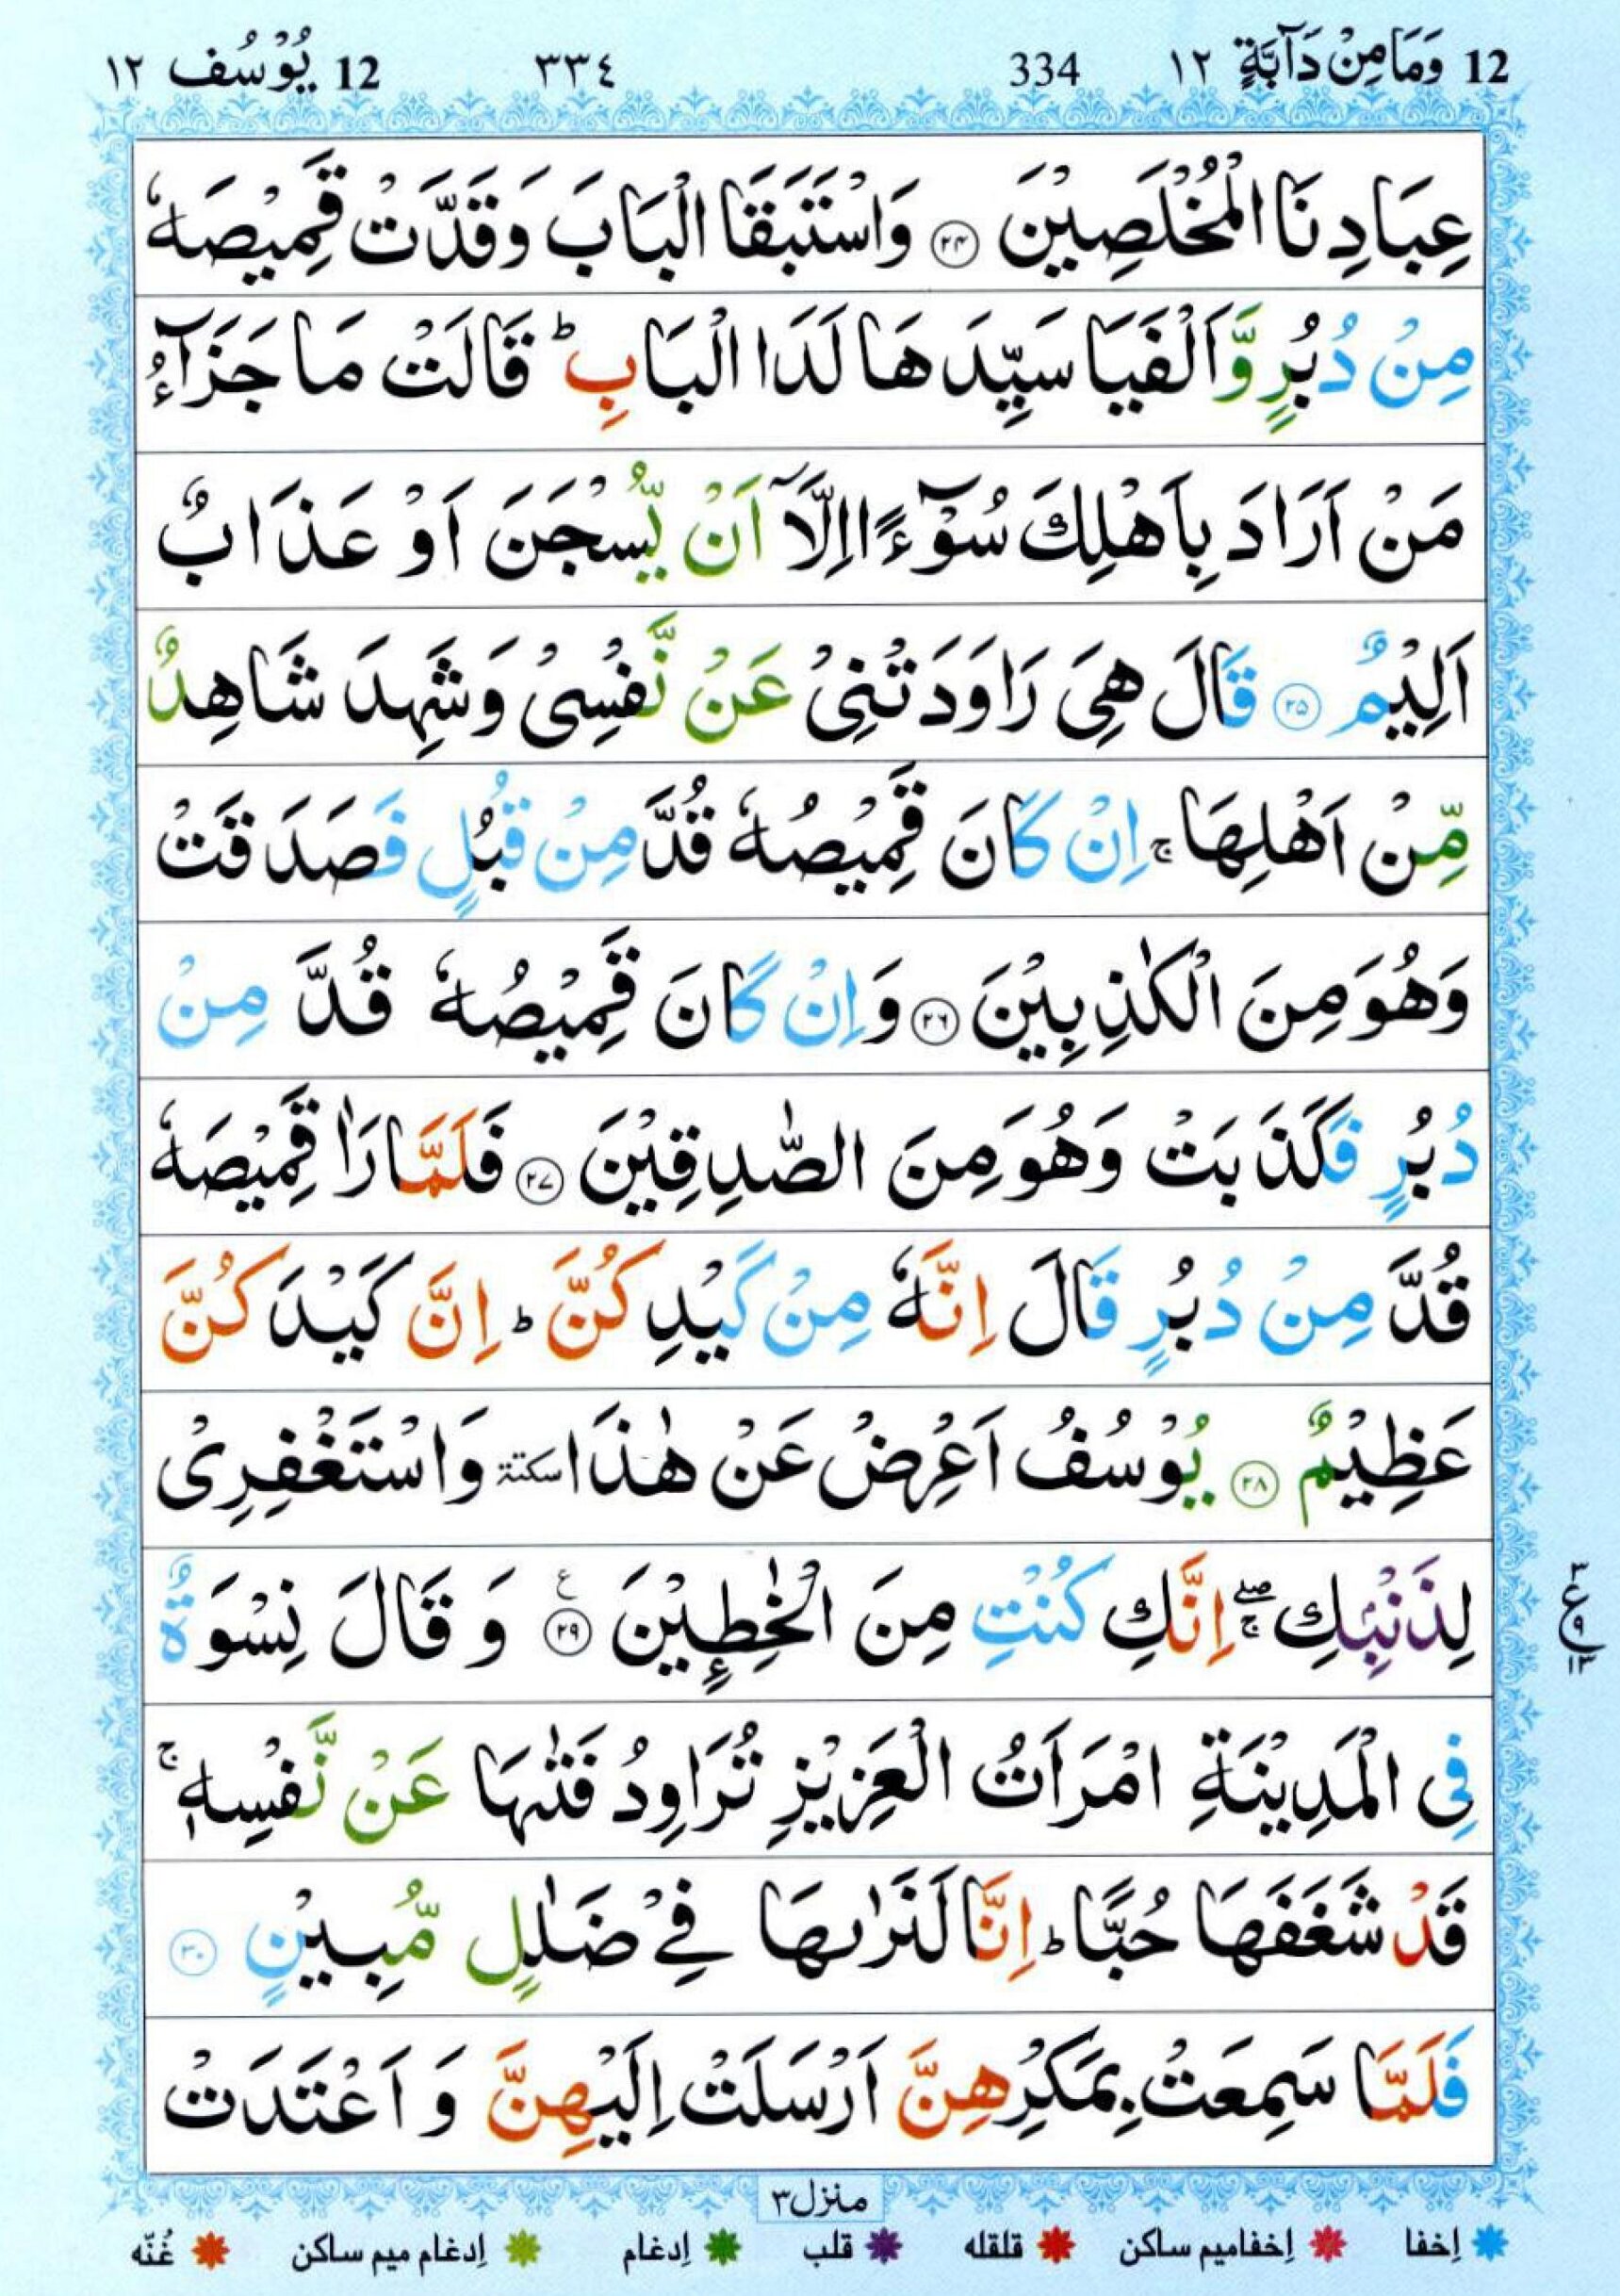 12 وَمَا مِنْ دَآبَّةٍ ١٢ 334 ٣٣٤ 12 يُوْسُف ١٢
عِبَادِنَا الْمُخْلَصِيْنَ ﴿۲۴﴾ وَاسْتَبَقَا الْبَابَ وَقَدَّتْ قَمِيْصَهٗ
مِنْ دُبُرٍ وَّاَلْفَيَا سَيِّدَهَا لَدَا الْبَابِ ؕ قَالَتْ مَا جَزَآءُ
مَنْ اَرَادَ بِاَهْلِكَ سُوْٓءًا اِلَّاۤ اَنْ يُّسْجَنَ اَوْ عَذَابٌ
اَلِيْمٌ ﴿۲۵﴾ قَالَ هِىَ رَاوَدَتْنِىْ عَنْ نَّفْسِىْ وَشَهِدَ شَاهِدٌ
مِّنْ اَهْلِهَا ۚ اِنْ كَانَ قَمِيْصُهٗ قُدَّ مِنْ قُبُلٍ فَصَدَقَتْ
وَهُوَ مِنَ الْكٰذِبِيْنَ ﴿۲۶﴾ وَاِنْ كَانَ قَمِيْصُهٗ قُدَّ مِنْ
دُبُرٍ فَكَذَبَتْ وَهُوَ مِنَ الصّٰدِقِيْنَ ﴿۲۷﴾ فَلَمَّا رَاٰ قَمِيْصَهٗ
قُدَّ مِنْ دُبُرٍ قَالَ اِنَّهٗ مِنْ كَيْدِكُنَّ ؕ اِنَّ كَيْدَكُنَّ
عَظِيْمٌ ﴿۲۸﴾ يُوْسُفُ اَعْرِضْ عَنْ هٰذَا سكتة وَاسْتَغْفِرِىْ
لِذَنْۢبِكِ ۖۚ اِنَّكِ كُنْتِ مِنَ الْخٰطِـِٕيْنَ ﴿۲۹﴾ ع وَ قَالَ نِسْوَةٌ
فِى الْمَدِيْنَةِ امْرَاَتُ الْعَزِيْزِ تُرَاوِدُ فَتٰىهَا عَنْ نَّفْسِهٖ ۚ
قَدْ شَغَفَهَا حُبًّا ؕ اِنَّا لَنَرٰىهَا فِىْ ضَلٰلٍ مُّبِيْنٍ ﴿۳۰﴾
فَلَمَّا سَمِعَتْ بِمَكْرِهِنَّ اَرْسَلَتْ اِلَيْهِنَّ وَ اَعْتَدَتْ
٣ ع ٩ ١٣
منزل ٣
اِخفا اِخفامیم ساکن قلقله قلب اِدغام اِدغام میم ساکن غُنّه